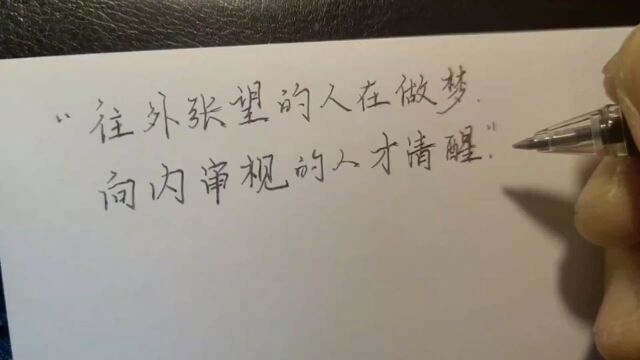 “往外张望的人在做梦.
向内审视的人才清醒.”